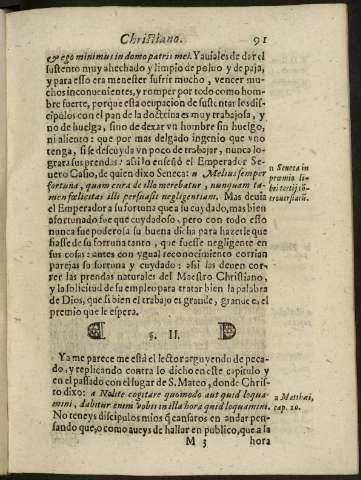 Christiano. 91
& ego minimus in domo patris mei. Yauiales de dar el
sustento muy ahechado y limpio de poluo y de paja,
y para esso era menester sufrir mucho, vencer mu-
chos inconuenientes, y romper por todo como hom-
bre fuerte, porque esta ocupacion de sustentar los dis-
cipulos con el pan de la doctrina es muy trabajosa, y
no de huelga, sino de dexar vn hombre sin huelgo,
ni aliento: que por mas delgado ingenio que vno
tenga, si se descuyda vn poco de trabajar, nunca lo-
grara sus prendas: assi lo enseñó el Emperador Se-
uero Casio, de quien dixo Seneca: u Melius semper
fortuna, quam cura de illa merebatur, nunquam ta-
men fœlicitas illi persuasit negligentium. Mas deuia
el Emperador a su fortuna que a la cuydado, mas bien
afortunado fue que cuydadoso, pero con todo esto
nunca fue poderosa su buena dicha para hazerle que
fiasse de su fortuna tanto, que fuesse negligente en
sus cosas: antes con ygual reconocimiento corrian
parejas su fortuna y cuydado: assi las deuen cor-
rer las prendas naturales del Maestro Christiano,
y la solicitud de su empleo para tratar bien la palabra
de Dios, que si bien el trabajo es grande, grande es el
premio que le espera.
u Seneca in
præmio li-
bri tertij cõ-
trouersiarũ.
§. II.
Ya me parece me está el lector arguyendo de peca-
do, y replicando contra lo dicho en este capitulo y
en el passado con el lugar de S. Mateo, donde Chris-
to dixo: a Nolite cogitare quomodo aut quid loqua-
mini, dabitur enim vobis in illa hora quid loquamini.
No teneys discipulos mios q̃ cansaros en andar pen-
sando que, o como aueys de hallar en publico, que a la
a Matthæi,
cap. 10.
M 3 hora